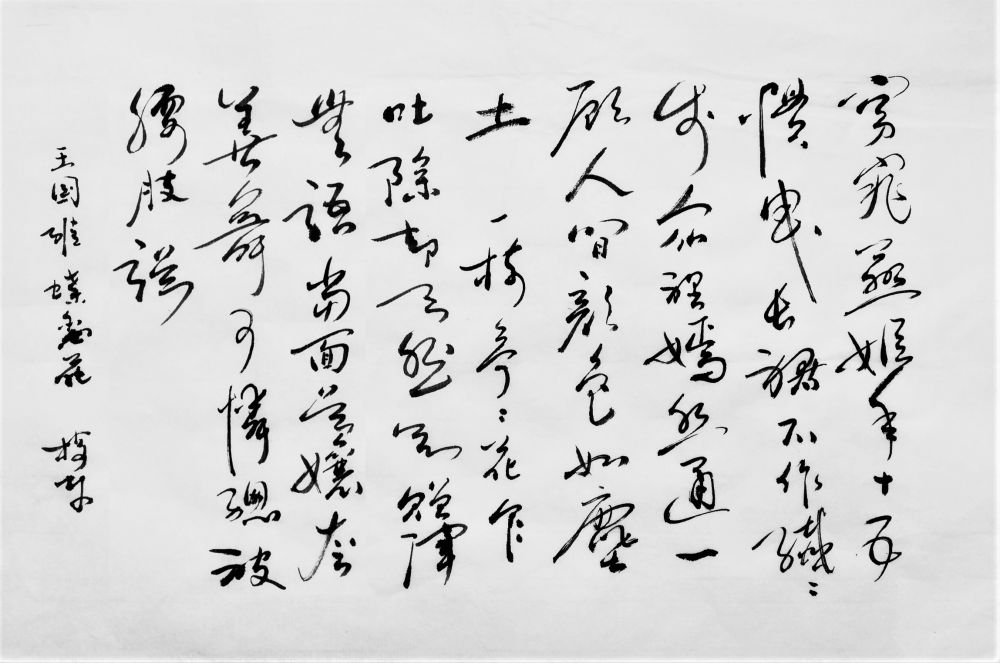 窈窕燕姬年十五
慣曳長裾不作纖〻
步众裡嫣然通一
顧人間顏色如塵
土 一樹亭〻花乍
吐除却天然欲贈渾
無語當面吳孃夸
善舞可憐總被
腰肢誤
王國維蝶戀花